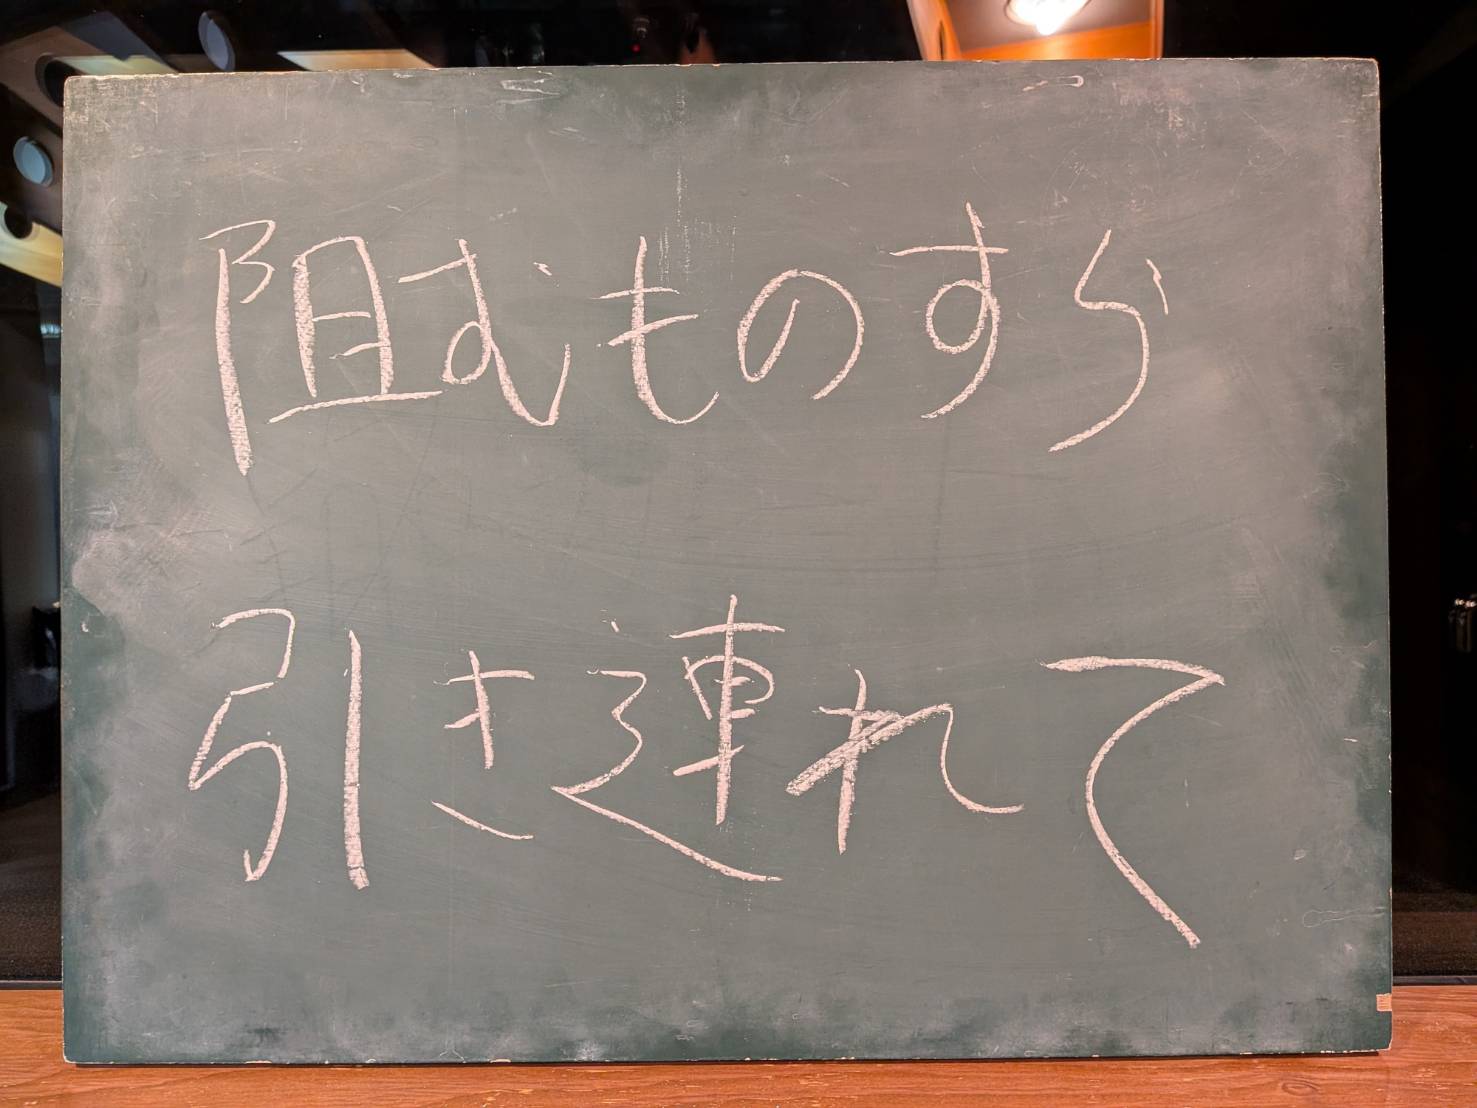 阻むものすら
引き連れて